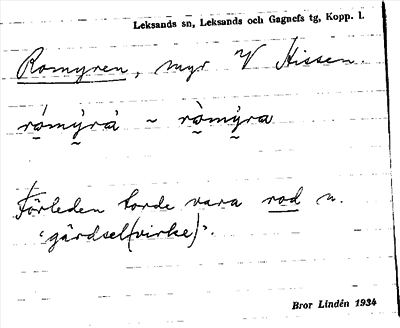 Leksands sn, Leksands och Gagnefs tg, Kopp. l.
Romyren, myr V Hissen.
rómýrå ~ ròmýra
Förleden torde vara rod n.
'gärdsel(virke)'.
Bror Lindén 1934